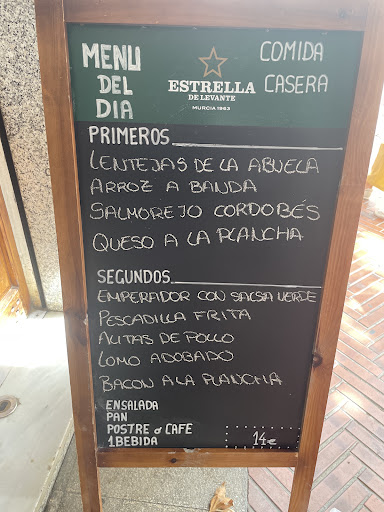 MENU DEL DIA
ESTRELLA
DE LEVANTE
MURCIA 1963
COMIDA CASERA
PRIMEROS
LENTEJAS DE LA ABUELA
ARROZ A BANDA
SALMOREJO CORDOBÉS
QUESO A LA PLANCHA
SEGUNDOS
EMPERADOR CON SALSA VERDE
PESCADILLA FRITA
ALITAS DE POLLO
LOMO ADOBADO
BACON A LA PLANCHA
ENSALADA
PAN
POSTRE o CAFE
1 BEBIDA
14€